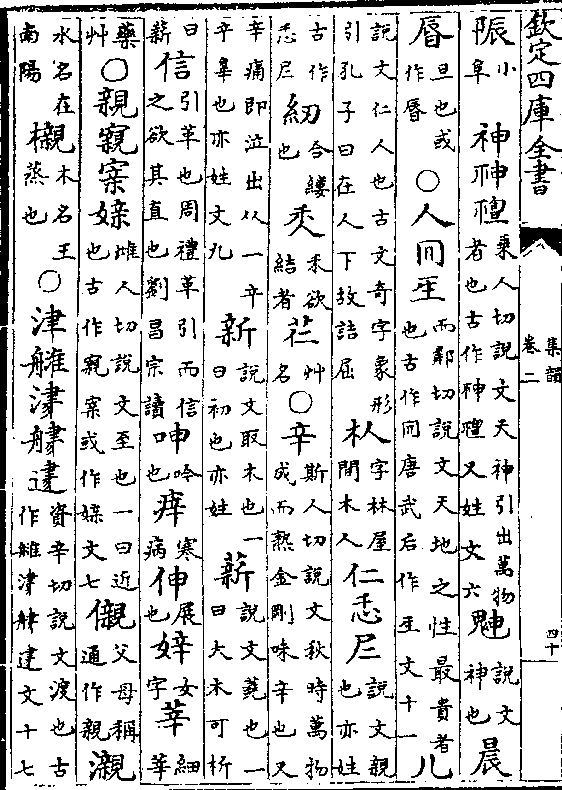 欽定四庫全書 集韻 卷二 四十
陙小阜 神𥛃䄠乗人切說文天神引出萬物者也古作𥛃䄠又姓文六 䰠說文神也 晨
㫳旦也或作㫳 ○人囘𤯔而鄰切說文天地之性最貴者也古作囘唐武后作𤯔文十一 儿
說文仁人也古文奇字象形引孔子曰在人下故詰屈 朲字林屋間木人 仁忎𡰥說文親也亦姓
古作忎𡰥 紉合縷也 𥝩禾欲結者 芢艸名 ○辛斯人切說文秋時萬物成而熟金剛味辛也又
辛痛即泣出从一辛辛辠也亦姓文九 新說文取木也一曰初也亦姓 薪說文蕘也一曰大木可析
曰薪 信引革也周禮革引而信之欲其直也劉昌宗讀 呻吟也 㾕寒病 伸展也 㛙女字 莘細華
藥艸 ○親寴㝯媇雌人切說文至也一曰近也古作寴㝯或作媇文七 儭父母稱通作親 瀙
水名在南陽 櫬木名王蒸也 ○津資辛切說文渡也古作文十七